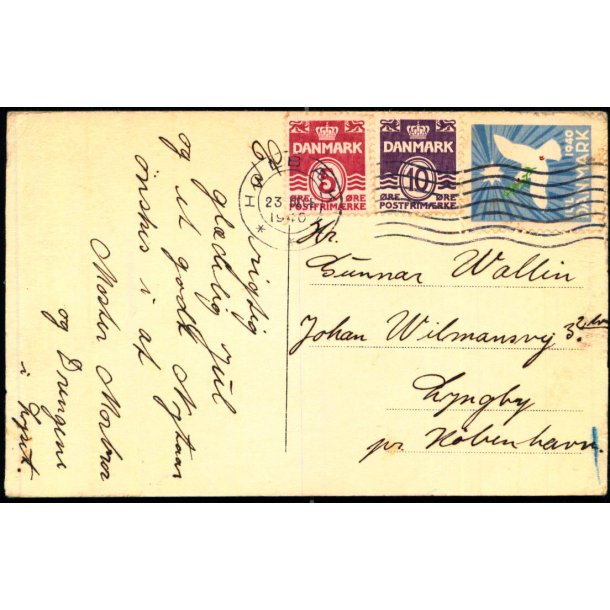 En rigtig
glædelig Jul
og et godt Nytaar
ønskes i af
Moster Morbror
og Drengene
i Lyst.
DANMARK
5
ØRE ØRE
POSTFRIMÆRKE
DANMARK
10
ØRE ØRE
POSTFRIMÆRKE
1940
DANMARK
23
1940
Hr.
Gunnar Wallin
Johan Wilmansvej 32
Lyngby
pr København.